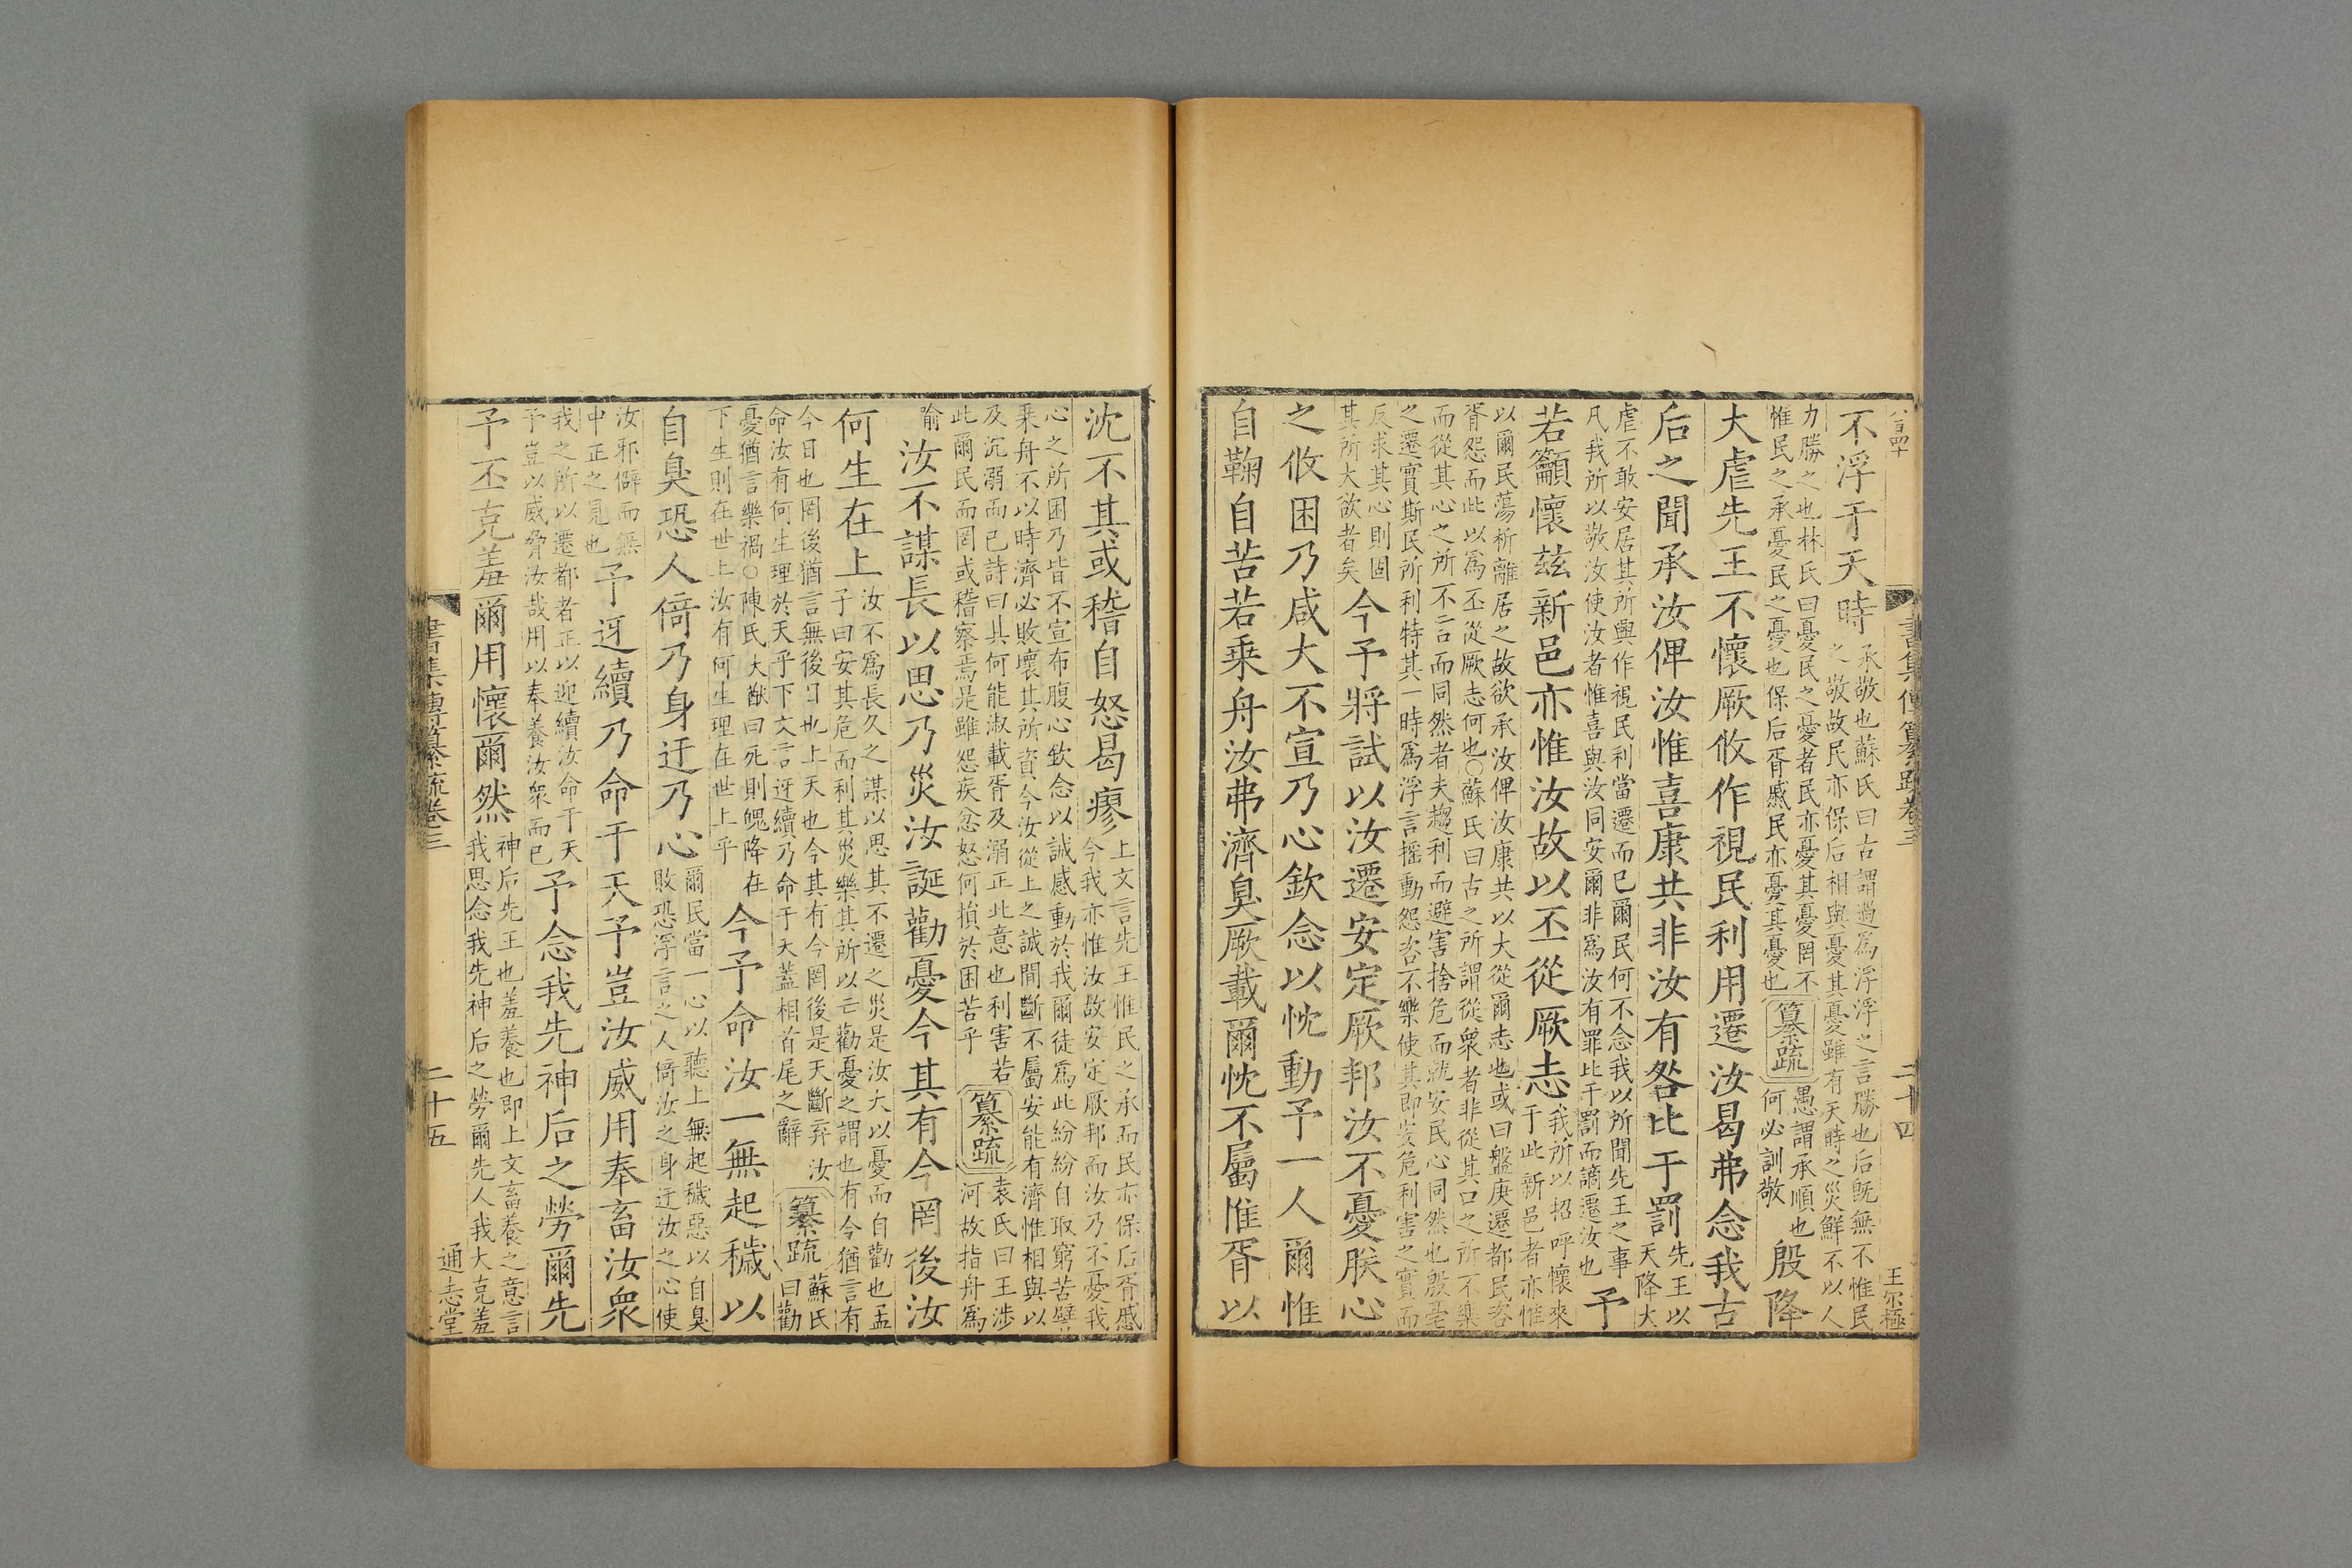 八百四十
書集傳纂疏卷三
二十四
王尔極
不浮于天時
承敬也蘇氏曰古謂過爲浮浮之言勝也后旣無不惟民
之敬故民亦保后相與憂其憂雖有天時之災鮮不以人
力勝之也林氏曰憂民之憂者民亦憂其憂罔不
惟民之承憂民之憂也保后胥慼民亦憂其憂也
纂疏
愚謂承順也
何必訓敬
殷降
大虐先王不懷厥攸作視民利用遷汝曷弗念我古
后之聞承汝俾汝惟喜康共非汝有咎比于罰
先王以
天降大
虐不敢安居其所興作視民利當遷而已爾民何不念我以所聞先王之事
凡我所以敬汝使汝者惟喜與汝同安爾非爲汝有罪比于罰而謫遷汝也
予
若籲懷兹新邑亦惟汝故以丕從厥志
我所以招呼懷來
于此新邑者亦惟
以爾民蕩析離居之故欲承汝俾汝康共以大從爾志也或曰盤庚遷都民咨
胥怨而此以爲丕從厥志何也○蘇氏曰古之所謂從衆者非從其口之所不樂
而從其心之所不言而同然者夫趨利而避害捨危而就安民心同然也殷亳
之遷實斯民所利特其一時爲浮言搖動怨咨不樂使其即安危利害之實而
反求其心則固
其所大欲者矣
今予將試以汝遷安定厥邦汝不憂朕心
之攸困乃咸大不宣乃心欽念以忱動予一人爾惟
自鞠自苦若乗舟汝弗濟臭厥載爾忱不屬惟胥以
沈不其或稽自怒曷瘳
上文言先王惟民之承而民亦保后胥慼
今我亦惟汝故安定厥邦而汝乃不憂我
心之所困乃皆不宣布腹心欽念以誠感動於我爾徒爲此紛紛自取窮苦譬
乗舟不以時濟必敗壞其所資今汝從上之誠間斷不屬安能有濟惟相與以
及沉溺而已詩曰其何能淑載胥及溺正此意也利害若
此爾民而罔或稽察焉是雖怨疾忿怒何損於困苦乎
纂疏
袁氏曰王涉
河故指舟爲
喻
汝不謀長以思乃災汝誕勸憂今其有今罔後汝
何生在上
汝不爲長久之謀以思其不遷之災是汝大以憂而自勸也孟
子曰安其危而利其災樂其所以亡勸憂之謂也有今猶言有
今日也罔後猶言無後日也上天也今其有今罔後是天斷弃汝
命汝有何生理於天乎下文言迓續乃命于天蓋相首尾之辭
纂疏
蘇氏
曰勸
憂猶言樂禍○陳氏大猷曰死則魄降在
下生則在世上汝有何生理在世上乎
今予命汝一無起穢以
自臭恐人倚乃身迂乃心
爾民當一心以聽上無起穢惡以自臭
敗恐浮言之人倚汝之身迂汝之心使
汝邪僻而無
中正之見也
予迓續乃命于天予豈汝威用奉畜汝衆
我之所以遷都者正以迎續汝命于天
予豈以威脅汝哉用以奉養汝衆而已
予念我先神后之勞爾先
予丕克羞爾用懷爾然
神后先王也羞養也即上文畜養之意言
我思念我先神后之勞爾先人我大克羞
書集傳纂疏卷三
二十五
通志堂